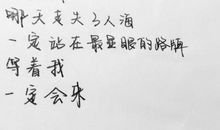 哪天走失了人海
一定站在最显眼的路牌
等着我
一定会来